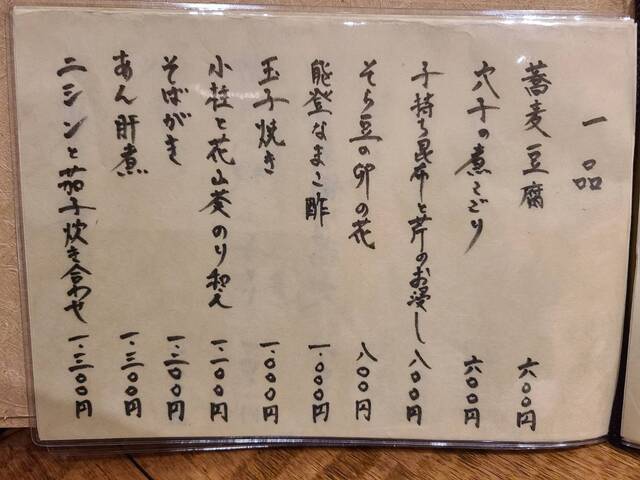 一品
蕎麦豆腐 六〇〇円
穴子の煮こごり 六〇〇円
子持ち昆布と芹のお浸し 八〇〇円
そら豆の卯の花 八〇〇円
能登なまこ酢 一.〇〇〇円
玉子焼き 一.〇〇〇円
小柱と花山葵のり和え 一.一〇〇円
そばがき 一.二〇〇円
あん肝煮 一.三〇〇円
ニシンと茄子炊き合わせ 一.三〇〇円